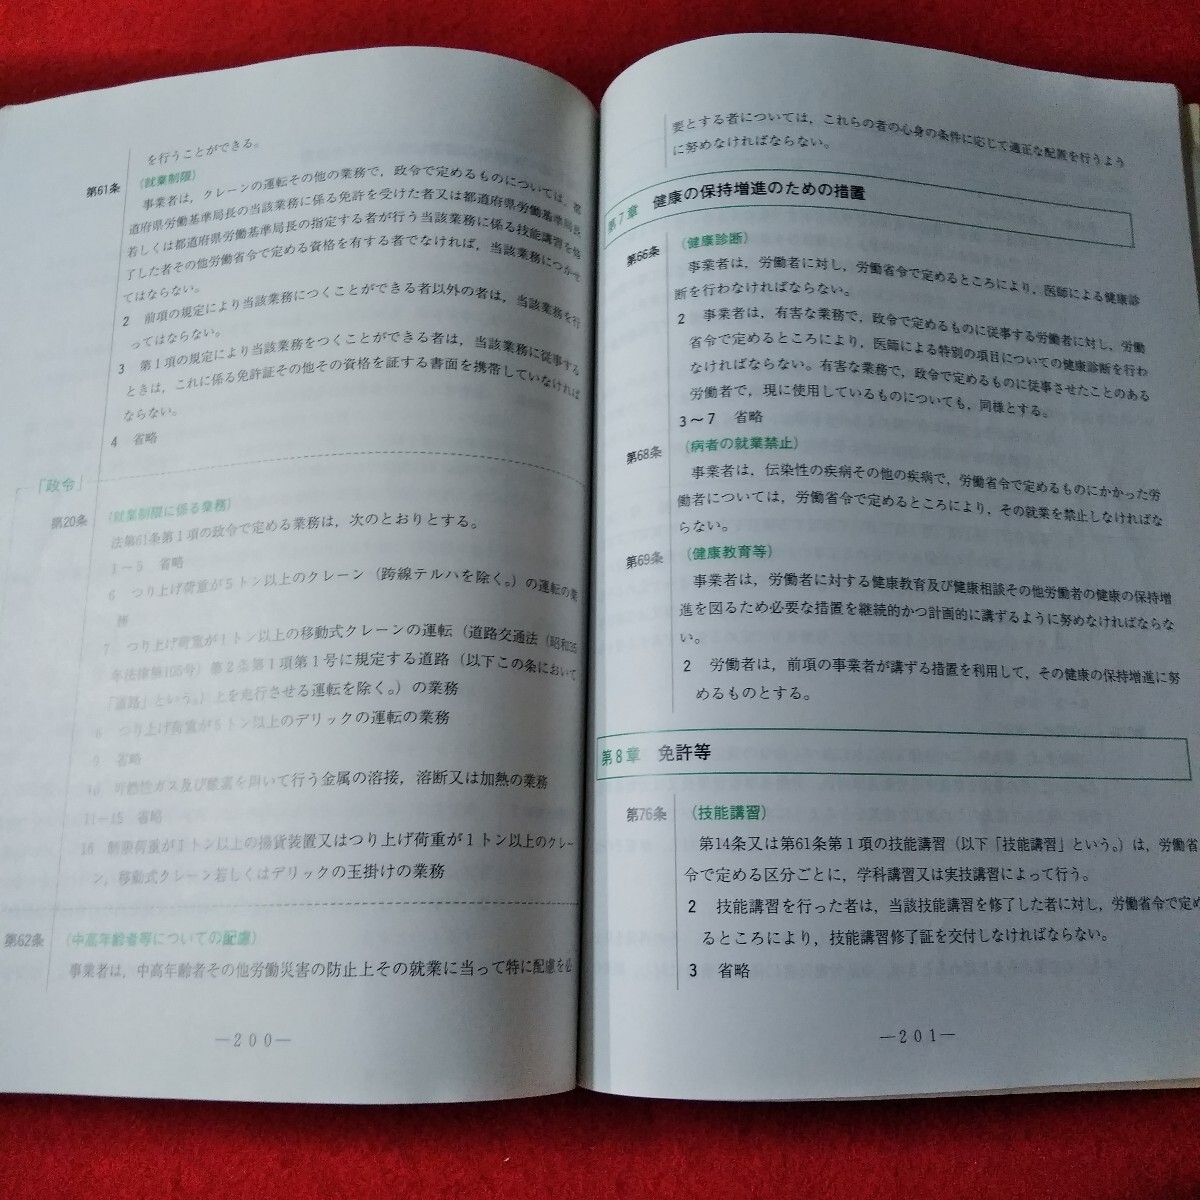 を行うことができる。
第61条 (就業制限)
事業者は，クレーンの運転その他の業務で，政令で定めるものについては，都
道府県労働基準局長の当該業務に係る免許を受けた者又は都道府県労働基準局長
若しくは都道府県労働基準局長の指定する者が行う当該業務に係る技能講習を修
了した者その他労働省令で定める資格を有する者でなければ，当該業務につかせ
てはならない。
2 前項の規定により当該業務につくことができる者以外の者は，当該業務を行
ってはならない。
3 第1項の規定により当該業務をつくことができる者は，当該業務に従事する
ときは，これに係る免許証その他その資格を証する書面を携帯していなければ
ならない。
4 省略
「政令」
第20条 (就業制限に係る業務)
法第61条第1項の政令で定める業務は，次のとおりとする。
1～5 省略
6 つり上げ荷重が5トン以上のクレーン（跨線テルハを除く。）の運転の業
務
7 つり上げ荷重が1トン以上の移動式クレーンの運転（道路交通法（昭和35
年法律第105号）第2条第1項第1号に規定する道路（以下この条において
「道路」という。）上を走行させる運転を除く。）の業務
8 つり上げ荷重が5トン以上のデリックの運転の業務
9 省略
10 可燃性ガス及び酸素を用いて行う金属の溶接，溶断又は加熱の業務
11～15 省略
16 制限荷重が1トン以上の揚貨装置又はつり上げ荷重が1トン以上のクレー
ン，移動式クレーン若しくはデリックの玉掛けの業務
第62条 (中高年齢者等についての配慮)
事業者は，中高年齢者その他労働災害の防止上その就業に当って特に配慮を必
―200―
要とする者については，これらの者の心身の条件に応じて適正な配置を行うよう
に努めなければならない。
第7章 健康の保持増進のための措置
第66条 (健康診断)
事業者は，労働者に対し，労働省令で定めるところにより，医師による健康診
断を行わなければならない。
2 事業者は，有害な業務で，政令で定めるものに従事する労働者に対し，労働
省令で定めるところにより，医師による特別の項目についての健康診断を行わ
なければならない。有害な業務で，政令で定めるものに従事させたことのある
労働者で，現に使用しているものについても，同様とする。
3～7 省略
第68条 (病者の就業禁止)
事業者は，伝染性の疾病その他の疾病で，労働省令で定めるものにかかった労
働者については，労働省令で定めるところにより，その就業を禁止しなければな
らない。
第69条 (健康教育等)
事業者は，労働者に対する健康教育及び健康相談その他労働者の健康の保持増
進を図るため必要な措置を継続的かつ計画的に講ずるように努めなければならな
い。
2 労働者は，前項の事業者が講ずる措置を利用して，その健康の保持増進に努
めるものとする。
第8章 免許等
第76条 (技能講習)
第14条又は第61条第1項の技能講習（以下「技能講習」という。）は，労働省
令で定める区分ごとに，学科講習又は実技講習によって行う。
2 技能講習を行った者は，当該技能講習を修了した者に対し，労働省令で定め
るところにより，技能講習修了証を交付しなければならない。
3 省略
―201―